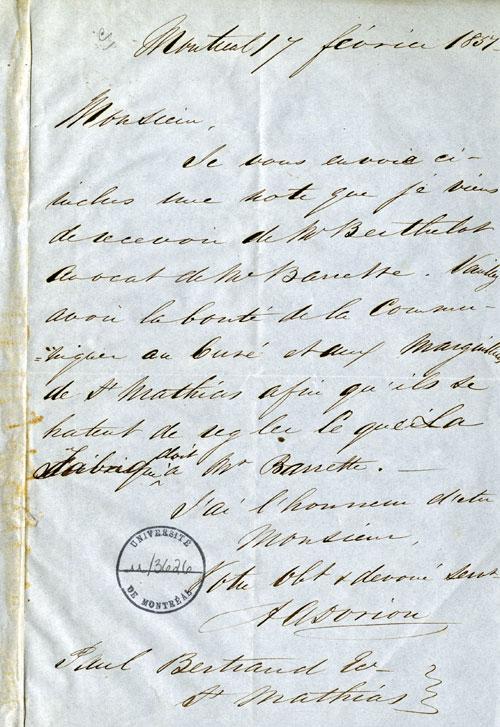 Montreal 17 février 1857
Monsieur,
Je vous envoie ci-
inclus une note que je viens
de recevoir de Mr Berthelot
avocat de Mr Barrette. Veuillez
avoir la bonté de la commu-
=niquer au Curé et aux Marguilliers
de St Mathias afin qu'ils se
hatent de regler ce que La
Fabrique doit à Mr Barrette. —
J'ai l'honneur d'etre
Monsieur,
Votre Obt & devoué Serv
A A Dorion
UNIVERSITÉ
u/3626
DE MONTRÉAL
Paul Bertrand Ec
St Mathias